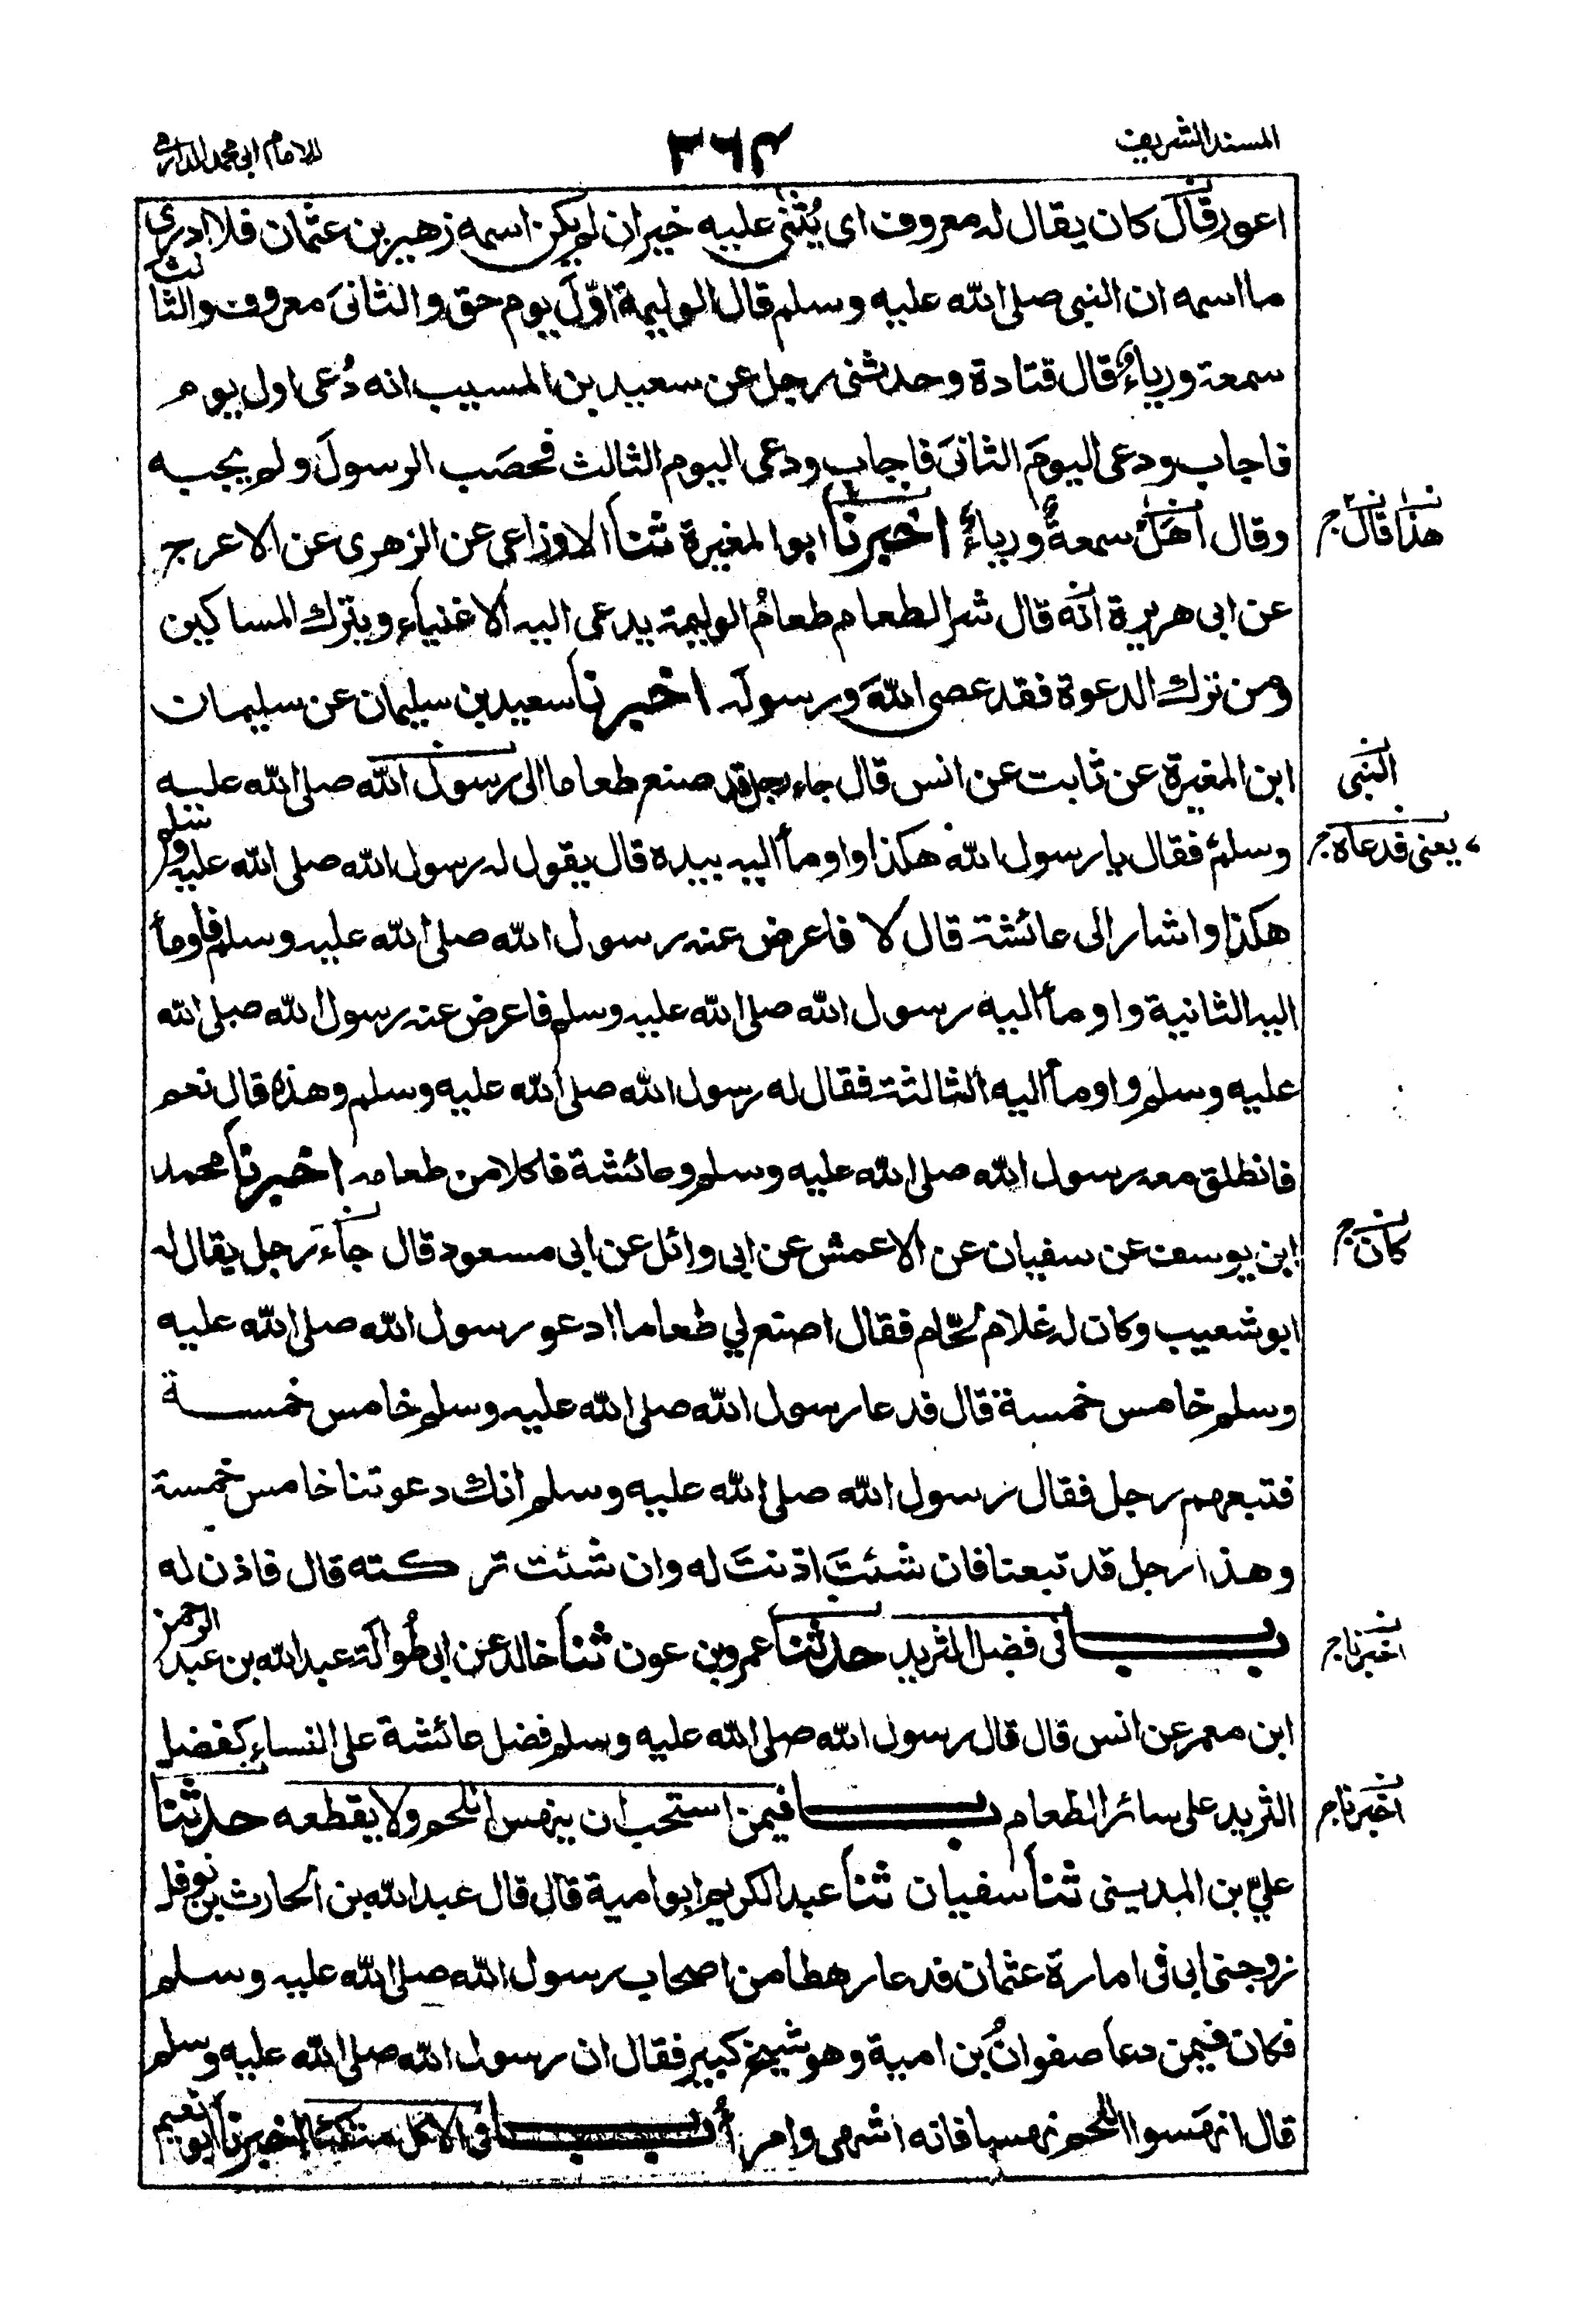 المسند الشريف
للامام ابی محمد الدارمی
اعور قال كان يقال له معروف ای يُثنٰی عليه خيرا ان لم يكن اسمه زهير بن عثمان فلا ادری
ما اسمه ان النبی صلی الله عليه وسلم قال الوليمة اوّلَ يوم حق والثانیَ معروف والثالث
سمعة ورياءٌ قال قتادة وحدثنی رجل عن سعيد بن المسيب انه دُعی اول يوم
فاجاب ودعی اليومَ الثانیَ فاجاب ودعی اليوم الثالث فحصَب الرسولَ ولم يجبه
وقال اهَلُ سمعةٍ ورياءٍ اخبرنا ابو المغيرة ثنا الاوزاعی عن الزهری عن الاعرج
هذا قال
عن ابی هريرة انّه قال شر الطعام طعامُ الوليمة يدعی اليه الاغنياء ويترك المساكين
ومن ترك الدعوة فقد عصی اللهَ ورسولَه اخبرنا سعيد بن سليمان عن سليمان
ابن المغيرة عن ثابت عن انس قال جاء رجل قد صنع طعاما الی رسول الله صلی الله عليه
النبی
وسلم فقال يا رسول الله هكذا واومأ اليه بيده قال يقول له رسول الله صلی الله عليه وسلم
يعنی فدعاه
هكذا واشار الی عائشة قال لا فاعرض عنه رسول الله صلی الله عليه وسلم فاومأ
اليه الثانية واومأ اليه رسول الله صلی الله عليه وسلم فاعرض عنه رسول الله صلی الله
عليه وسلم واومأ اليه الثالثة فقال له رسول الله صلی الله عليه وسلم وهذه قال نعم
فانطلق معه رسول الله صلی الله عليه وسلم وعائشة فاكلا من طعامه اخبرنا محمد
ابن يوسف عن سفيان عن الاعمش عن ابی وائل عن ابی مسعود قال جاء رجل يقال له
كان
ابو شعيب وكان له غلام لحّام فقال اصنع لي طعاما ادعو رسول الله صلی الله عليه
وسلم خامس خمسة قال فدعا رسول الله صلی الله عليه وسلم خامس خمسة
فتبعهم رجل فقال رسول الله صلی الله عليه وسلم انك دعوتنا خامس خمسة
وهذا رجل قد تبعنا فان شئتَ اذنتَ له وان شئت تركته قال فاذن له
باب فی فضل الثريد حدثنا عمرو بن عون ثنا خالد عن ابی طُوالَة عبد الله بن عبد الرحمن
اخبرنا
ابن معمر عن انس قال قال رسول الله صلی الله عليه وسلم فضل عائشة علی النساء كفضل
الثريد علی سائر الطعام باب فيمن استحب ان ينهس اللحم ولا يقطعه حدثنا
اخبرنا
عليّ بن المدينی ثنا سفيان ثنا عبد الكريم ابو امية قال قال عبد الله بن الحارث بن نوفل
زوجنی ابی فی امارة عثمان فدعا رهطا من اصحاب رسول الله صلی الله عليه وسلم
فكان فيمن دعا صفوانُ بن امية وهو شيخ كبير فقال ان رسول الله صلی الله عليه وسلم
قال انهَسوا اللحم نهسا فانه اشهی وامرأ باب فی الاكل متكئا اخبرنا ابو نعيم